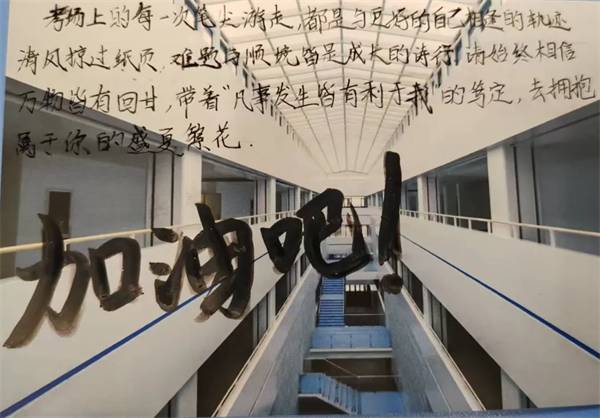 考场上的每一次笔尖游走,都是与更好的自己相逢的轨迹
清风掠过纸页,难题与顺境皆是成长的诗行,请始终相信
万物皆有回甘,带着“凡事发生皆有利于我”的笃定,去拥抱
属于你的盛夏繁花.
加油吧!